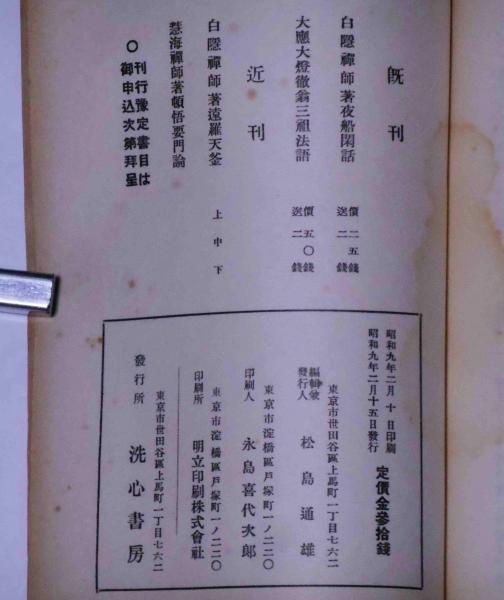 既刊
白隱禪師著夜船閑話
價二五錢
送二錢
大應大燈徹翁三祖法語
價五〇錢
送二錢
近刊
白隱禪師著遠羅天釜
上中下
慧海禪師著頓悟要門論
○刊行豫定書目は
御申込次第拜呈
昭和九年二月十日印刷
昭和九年二月十五日發行
定價金參拾錢
東京市世田谷區上馬町一丁目七六二
編輯兼
發行人
松島通雄
東京市淀橋區戶塚町一ノ二二〇
印刷人
永島喜代次郎
東京市淀橋區戶塚町一ノ二二〇
印刷所
明立印刷株式會社
東京市世田谷區上馬町一丁目七六二
發行所
洗心書房